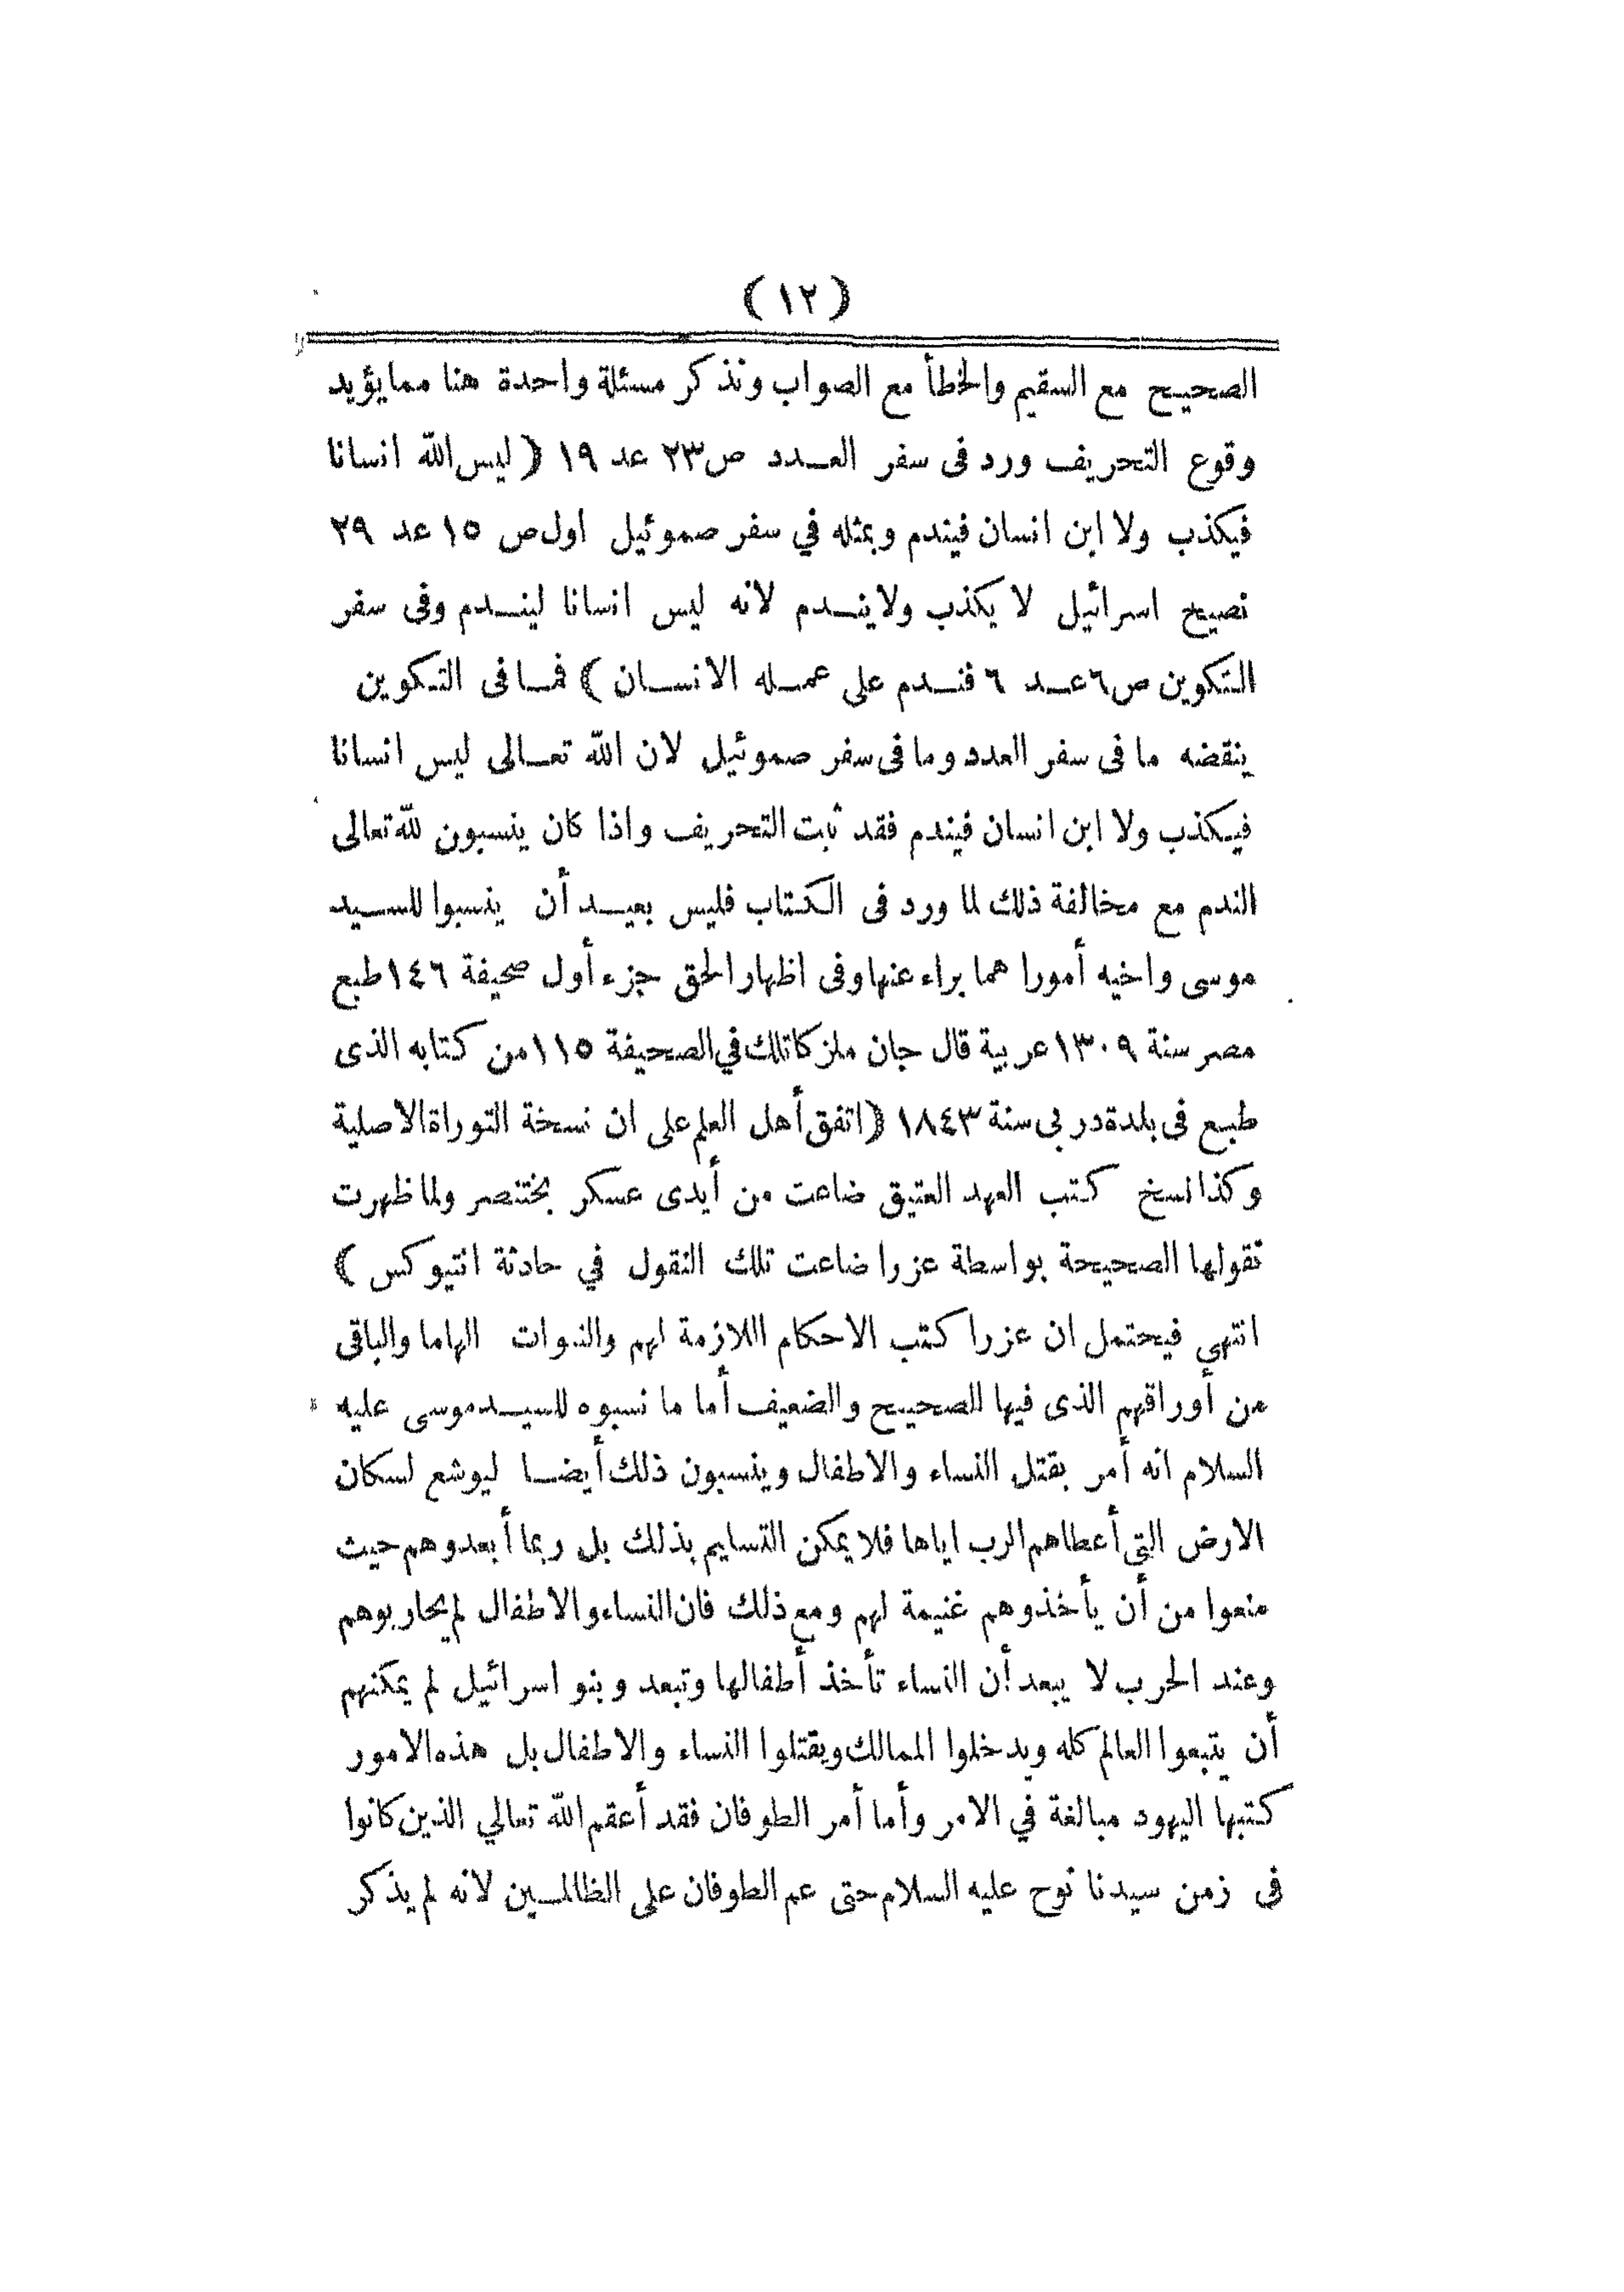 ( ١٢ )
الصحيح مع السقيم والخطأ مع الصواب ونذكر مسئلة واحدة هنا مما يؤيد
وقوع التحريف ورد فى سفر العدد ص٢٣ عد ١٩ ( ليس الله انسانا
فيكذب ولا ابن انسان فيندم وبمثله في سفر صموئيل اول ص ١٥ عد ٢٩
نصيح اسرائيل لا يكذب ولا يندم لانه ليس انسانا ليندم وفى سفر
التكوين ص ٦ عد ٦ فندم على عمله الانسان ) فما فى التكوين
ينقضه ما فى سفر العدد وما فى سفر صموئيل لان الله تعالى ليس انسانا
فيكذب ولا ابن انسان فيندم فقد ثبت التحريف واذا كان ينسبون لله تعالى
الندم مع مخالفة ذلك لما ورد فى الكتاب فليس بعيد أن ينسبوا للسيد
موسى واخيه أمورا هما براء عنها وفى اظهار الحق جزء أول صحيفة ١٤٦ طبع
مصر سنة ١٣٠٩ عربية قال جان ملنر كاتلك في الصحيفة ١١٥ من كتابه الذى
طبع فى بلدة دربى سنة ١٨٤٣ ( اتفق أهل العلم على ان نسخة التوراة الاصلية
وكذا نسخ كتب العهد العتيق ضاعت من أيدى عسكر بختنصر ولما ظهرت
نقولها الصحيحة بواسطة عزرا ضاعت تلك النقول في حادثة انتيوكس )
انتهى فيحتمل ان عزرا كتب الاحكام اللازمة لهم والنبوات الهاما والباقى
من أوراقهم الذى فيها الصحيح والضعيف أما ما نسبوه للسيد موسى عليه
السلام انه أمر بقتل النساء والاطفال وينسبون ذلك أيضا ليوشع لسكان
الارض التى أعطاهم الرب اياها فلا يمكن التسليم بذلك بل ربما أبعدوهم حيث
منعوا من أن يأخذوهم غنيمة لهم ومع ذلك فان النساء والاطفال لم يحاربوهم
وعند الحرب لا يبعد أن النساء تأخذ أطفالها وتبعد وبنو اسرائيل لم يمكنهم
أن يتبعوا العالم كله ويدخلوا الممالك ويقتلوا النساء والاطفال بل هذه الامور
كتبها اليهود مبالغة في الامر وأما أمر الطوفان فقد أعقم الله تعالي الذين كانوا
فى زمن سيدنا نوح عليه السلام حتى عم الطوفان على الظالمين لانه لم يذكر